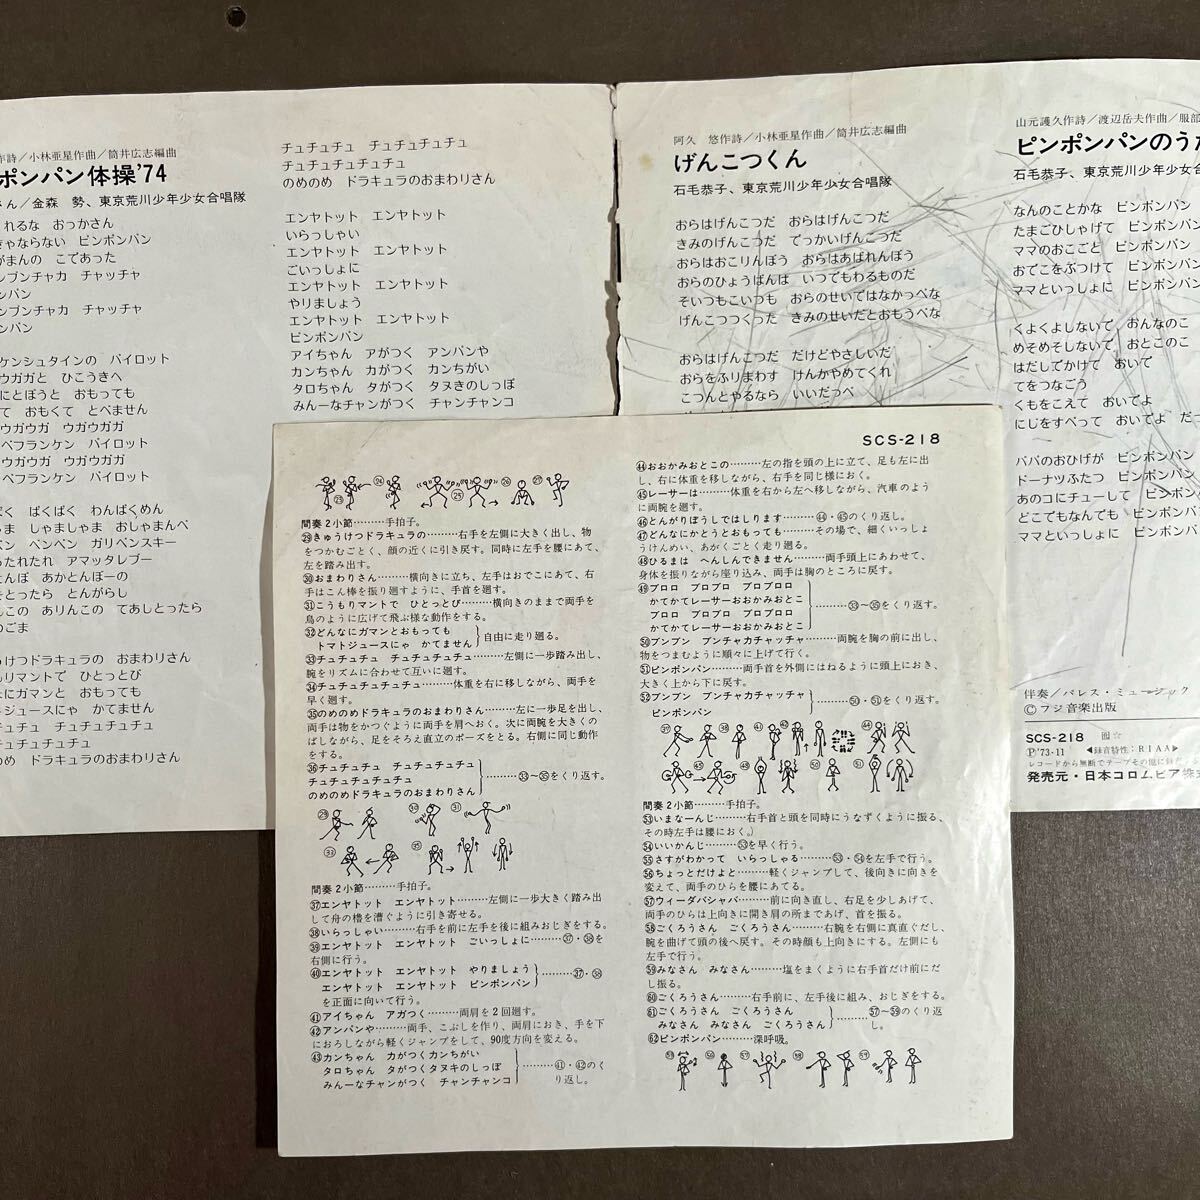 作詩／小林亜星作曲／筒井広志編曲
ポンパン体操'74
さん／金森 勢、東京荒川少年少女合唱隊
れるな おっかさん
ぎゃならない ピンポンパン
がまんの こであった
ンブンチャカ チャッチャ
ンパン
ンブンチャカ チャッチャ
ンパン
ケンシュタインの パイロット
ウガガと ひこうきへ
にとぼうと おもっても
て おもくて とべません
ウガウガ ウガウガガ
ベフランケン パイロット
ウガウガ ウガウガガ
ベフランケン パイロット
ばく ばくばく わんぱくめん
ゃま しゃましゃま おしゃまんべ
ベン ペンペン ガリペンスキー
ったれたれ アマッタレブー
とんぼ あかとんぼーの
をとったら とんがらし
んこの ありんこの てあしとったら
のごま
うけつドラキュラの おまわりさん
もりマントで ひとっとび
なにガマンと おもっても
トジュースにゃ かてません
チュチュチュ チュチュチュチュ
チュチュチュチュ
のめ ドラキュラのおまわりさん
チュチュチュ チュチュチュチュ
チュチュチュチュチュチュ
のめのめ ドラキュラのおまわりさん
エンヤトット エンヤトット
いらっしゃい
エンヤトット エンヤトット
ごいっしょに
エンヤトット エンヤトット
やりましょう
エンヤトット エンヤトット
ピンポンパン
アイちゃん アがつく アンパンや
カンちゃん カがつく カンちがい
タロちゃん タがつく タヌきのしっぽ
みんーなチャンがつく チャンチャンコ
阿久 悠作詩／小林亜星作曲／筒井広志編曲
げんこつくん
石毛恭子、東京荒川少年少女合唱隊
おらはげんこつだ おらはげんこつだ
きみのげんこつだ でっかいげんこつだ
おらはおこりんぼう おらはあばれんぼう
おらのひょうばんは いつでもわるものだ
そいつもこいつも おらのせいではなかっぺな
げんこつつくった きみのせいだとおもうべな
おらはげんこつだ だけどやさしいだ
おらをふりまわす けんかやめてくれ
こつんとやるなら いいだっぺ
山元護久作詩／渡辺岳夫作曲／服部
ピンポンパンのうた
石毛恭子、東京荒川少年少女合
なんのことかな ピンポンパン
たまごひしゃげて ピンポンパン
ママのおこごと ピンポンパン
おでこをぶつけて ピンポンパン
ママといっしょに ピンポンパン
くよくよしないで おんなのこ
めそめそしないで おとこのこ
はだしでかけて おいで
てをつなごう
くもをこえて おいでよ
にじをすべって おいでよ だっ
パパのおひげが ピンポンパン
ドーナツふたつ ピンポンパン
あのコにチューして ピンポン
どこでもなんでも ピンポン
ママといっしょに ピンポンパ
伴奏／パレス・ミュージック
Ⓒフジ音楽出版
SCS-218
Ⓟ'73・11 ◀録音特性：RIAA▶
発売元・日本コロムビア株式
SCS-218
間奏2小節………手拍子。
㉙きゅうけつドラキュラの………右手を左側に大きく出し、物
をつかむごとく、顔の近くに引き戻す。同時に左手を腰にあて、
左を踏み出す。
㉚おまわりさん………横向きに立ち、左手はおでこにあて、右
手はこん棒を振り廻すように、手首を廻す。
㉛こうもりマントで ひとっとび………横向きのままで両手を
鳥のように広げて飛ぶ様な動作をする。
㉜どんなにガマンとおもっても
トマトジュースにゃ かてません}自由に走り廻る。
㉝チュチュチュ チュチュチュチュ………左側に一歩踏み出し、
腕をリズムに合わせて互いに廻す。
㉞チュチュチュチュチュチュ………体重を右に移しながら、両手を
早く廻す。
㉟のめのめドラキュラのおまわりさん………左に一歩足を出し、
両手は物をかつぐように両手を肩へおく。次に両腕を大きくの
ばしながら、足をそろえ直立のポーズをとる。右側に同じ動作
をする。
㊱チュチュチュ チュチュチュチュ
チュチュチュチュチュチュ
のめのめドラキュラのおまわりさん}………㉝～㉟をくり返す。
間奏2小節………手拍子。
㊲エンヤトット エンヤトット………左側に一歩大きく踏み出
して舟の櫓を漕ぐように引き寄せる。
㊳いらっしゃい………右手を前に左手を後に組みおじぎをする。
㊴エンヤトット エンヤトット ごいっしょに………㊲・㊳を
右側に行う。
㊵エンヤトット エンヤトット やりましょう
エンヤトット エンヤトット ピンポンパン}………㊲・㊳
を正面に向いて行う。
㊶アイちゃん アガつく………両肩を2回廻す。
㊷アンパンや………両手、こぶしを作り、両肩におき、手を下
におろしながら軽くジャンプをして、90度方向を変える。
㊸カンちゃん カがつくカンちがい
タロちゃん タがつくタヌキのしっぽ
みんーなチャンがつく チャンチャンコ}………㊶・㊷のく
り返し。
㊹おおかみおとこの………左の指を頭の上に立て、足も左に出
し、右に体重を移しながら、右手を同じ様におく。
㊺レーサーは………体重を右から左へ移しながら、汽車のよう
に両腕を廻す。
㊻とんがりぼうしではしります………㊹・㊺のくり返し。
㊼どんなにかとうとおもっても………その場で、細くいっしょ
うけんめい、あがくごとく走り廻る。
㊽ひるまは へんしんできません………両手頭上にあわせて、
身体を振りながら座り込み、両手は胸のところに戻す。
㊾ブロロ ブロブロ ブロブロロ
かてかてレーサーおおかみおとこ
ブロロ ブロブロ ブロブロロ
かてかてレーサーおおかみおとこ}………㉝～㉟をくり返す。
㊿ブンブン ブンチャカチャッチャ………両腕を胸の前に出し、
物をつまむように順々に上げて行く。
51ピンポンパン………両手首を外側にはねるように頭上におき、
大きく上から下に戻す。
52ブンブン ブンチャカチャッチャ
ピンポンパン}………㊿・51をくり返す。
間奏2小節………手拍子。
53いまなーんじ………右手首と頭を同時にうなずくように振る、
その時左手は腰におく。）
54いいかんじ………53を早く行う。
55さすがわかって いらっしゃる………53・54を左手で行う。
56ちょっとだけよと………軽くジャンプして、後向きに向き
を変えて、両手のひらを腰にあてる。
57ウィーダバシャバ………前に向き直し、右足を少しあげて、
両手のひらは上向きに開き肩の所まであげ、首を振る。
58ごくろうさん ごくろうさん………右腕を右側に真直ぐだし、
腕を曲げて頭の後へ戻す。その時顔も上向きにする。左側にも
左手で行う。
59みなさん みなさん………塩をまくように右手首だけ前にだ
し振る。
60ごくろうさん………右手前に、左手後に組み、おじぎをする。
61ごくろうさん ごくろうさん
みなさん みなさん ごくろうさん}………57～59のくり返
し。
62ピンポンパン………深呼吸。